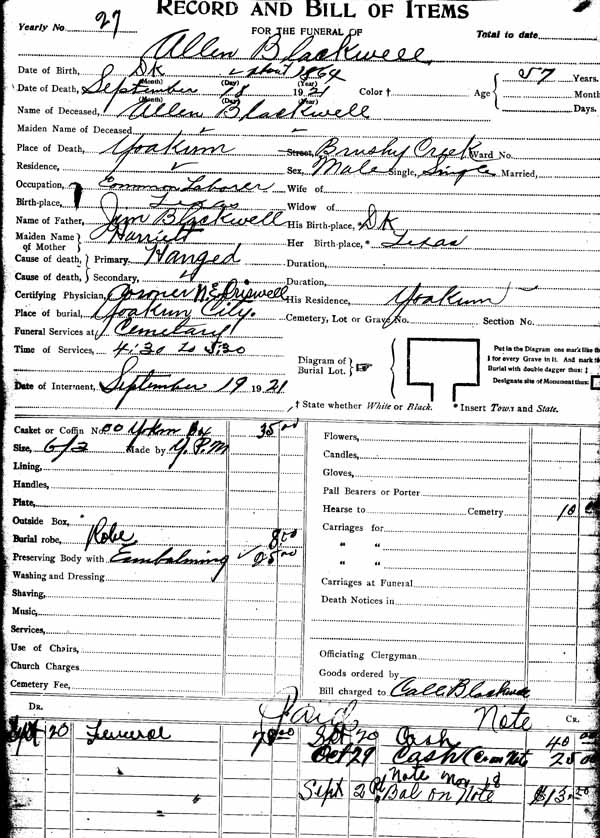 RECORD AND BILL OF ITEMS
Yearly No. 27 FOR THE FUNERAL OF Total to date
Allen Blackwell
Date of Birth, DK (Month) (Day) about 1864 (Year)
Date of Death, September (Month) 18 (Day) 1921 (Year) Color † Age 57 Years. Month Days.
Name of Deceased, Allen Blackwell
Maiden Name of Deceased
Place of Death, Yoakum Street, Brushy Creek Ward No.
Residence, Sex, Male Single, Single Married,
Occupation, Common Laborer Wife of
Birth-place, Texas Widow of
Name of Father, Jim Blackwell His Birth-place, DK
Maiden Name of Mother Harriett Her Birth-place,* Texas
Cause of death, Primary, Hanged Duration,
Cause of death, Secondary, Duration,
Certifying Physician, Coroner N.E. Driswell His Residence, Yoakum
Place of burial, Yoakum City. Cemetery, Lot or Grave No. Section No.
Funeral Services at Cemetary
Time of Services, 4:30 to 5:30
Diagram of Burial Lot.
Put in the Diagram one mark like th
for every Grave in it. And mark th
Burial with double dagger thus: ‡
Designate site of Monument thus:
Date of Interment, September 19 1921
† State whether White or Black. * Insert Town and State.
Casket or Coffin No. 00 Yokum Box 35 00
Size, 6/3 Made by Y.P.M
Lining,
Handles,
Plate,
Outside Box,
Burial robe, Robe 8 00
Preserving Body with Eambalming 25 00
Washing and Dressing
Shaving,
Music,
Services,
Use of Chairs,
Church Charges
Cemetery Fee,
Flowers,
Candles,
Gloves,
Pall Bearers or Porter
Hearse to Cemetry 10 00
Carriages for
" "
" "
Carriages at Funeral
Death Notices in
Officiating Clergyman
Goods ordered by
Bill charged to Call Blackwell
DR. Paid Note CR.
Sept 20 Feneral 78 00 Sept 20 Cash 40 00
Oct 29 Cash Cr on Note 25 00
Note Nov 18
Sept 2 Pd Bal on Note $13.20